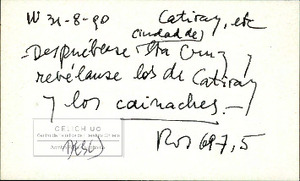 W 31-8-90 Catiray, etc
ciudad de
Despuébase Sta Cruz y
revélause los de Catiray
y los coinaches.—
CELICH UC
DESC)
Ros 697,5